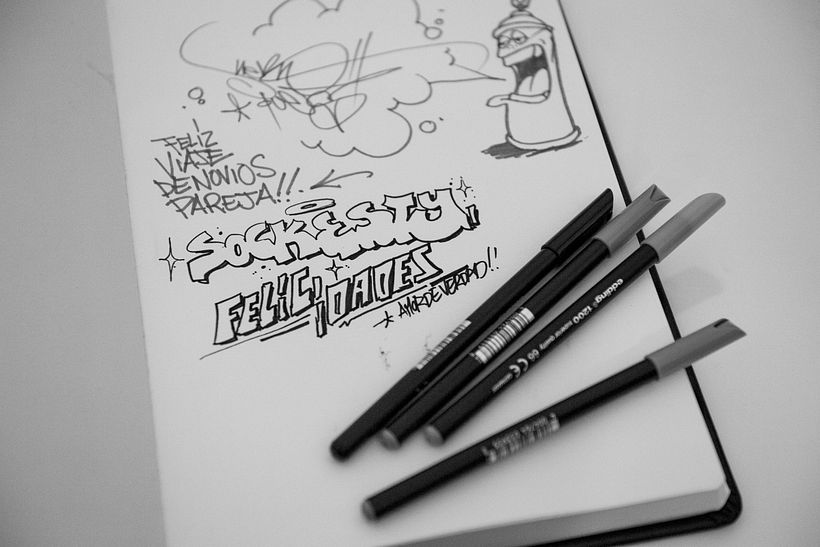 FELIZ
VIAJE
DE NOVIOS
PAREJA!!
SOCKESTY
FELICIDADES
* AMOR DE VERDAD!!
edding 1200